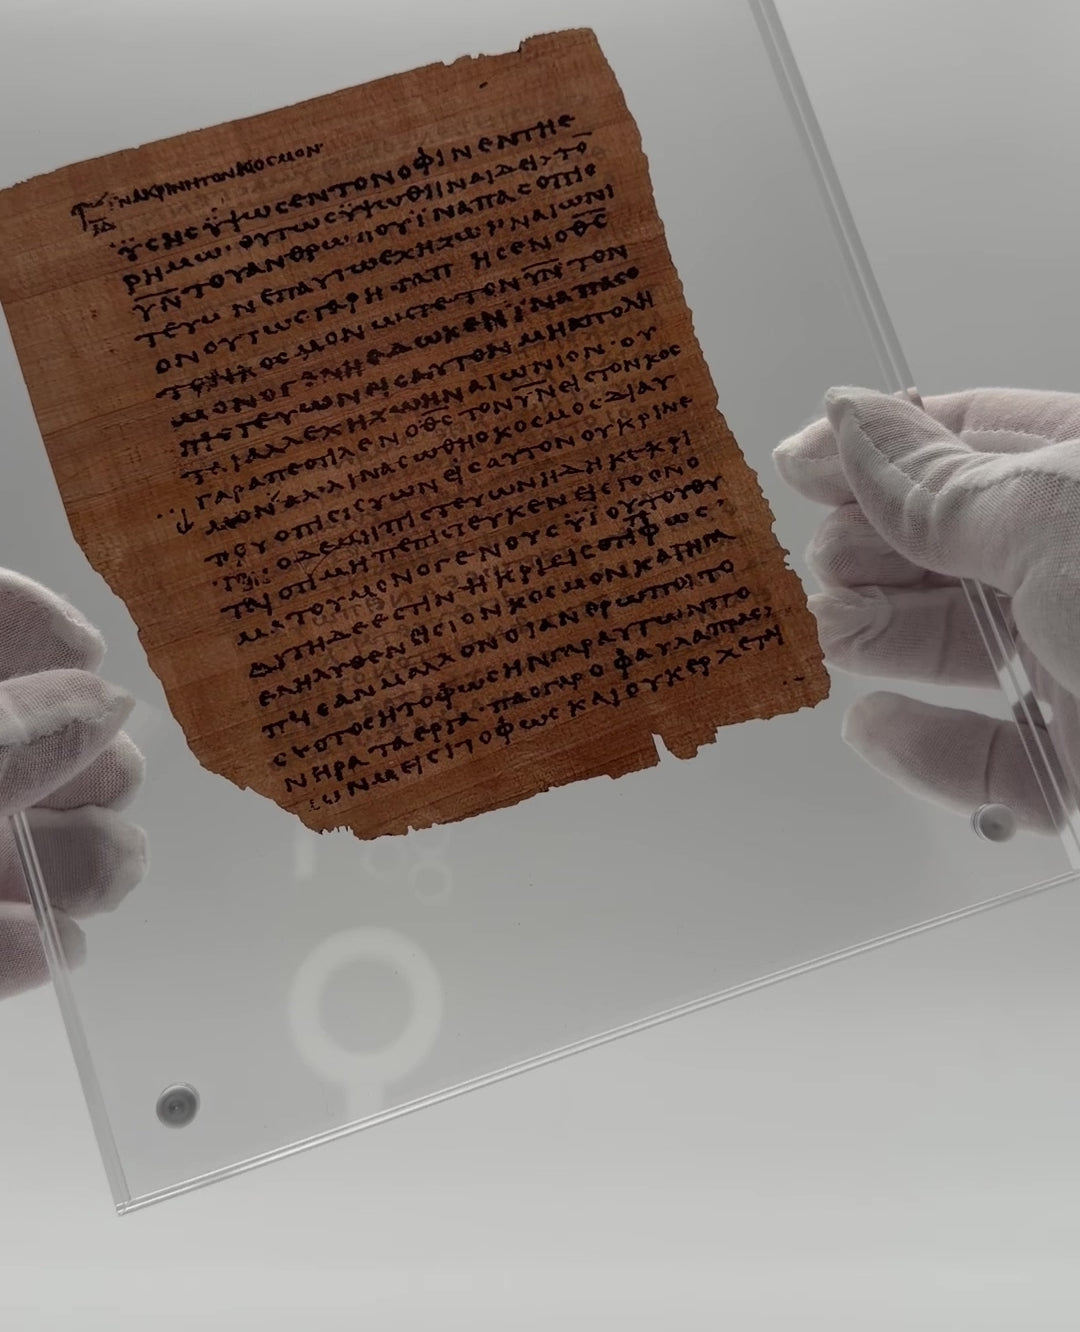 ΪΝΑΚΡΙΝΗΤΟΝΚΟϹΜΟΝ
ΫϹΗϹΫΨωϹΕΝΤΟΝΟΦΙΝΕΝΤΗΕ
ΡΗΜω·ΟΥΤωϹΫΨωΘΗΝΑΙΔΕΙΤΟ̅
Υ̅Ν̅ΤΟΥΑΝΘΡωΠΟΥΪΝΑΠΑϹΟΠΙϹ
ΤΕΥωΝΕΠΑΥΤωΕΧΗΖωΗΝΑΙωΝΙ
ΟΝΟΥΤωϹΓΑΡΗΓΑΠΗϹΕΝΟΘ̅Ϲ̅
ΤΟΝΚΟϹΜΟΝωϹΤΕΤΟΝΥ̅Ν̅ΤΟΝ
ΜΟΝΟΓΕΝΗΕΔωΚΕΝΪΝΑΠΑϹΟ
ΠΙϹΤΕΥωΝΕΙϹΑΥΤΟΝΜΗΑΠΟΛΗ
ΤΑΙΑΛΛΕΧΗΖωΗΝΑΙωΝΙΟΝ·ΟΥ
ΓΑΡΑΠΕϹΤΙΛΕΝΟΘ̅Ϲ̅ΤΟΝΥ̅Ν̅ΕΙϹΤΟΝΚΟϹ
ΜΟΝΑΛΛΙΝΑϹωΘΗΟΚΟϹΜΟϹΔΙΑΥ
ΤΟΥΟΠΙϹΤΕΥωΝΕΙϹΑΥΤΟΝΟΥΚΡΙΝΕ
ΤΑΙ:ΟΔΕΜΗΠΙϹΤΕΥωΝΗΔΗΚΕΚΡΙ
ΤΑΙΟΤΙΜΗΠΕΠΙϹΤΕΥΚΕΝΕΙϹΤΟΟΝΟ
ΜΑΤΟΥΜΟΝΟΓΕΝΟΥϹΫΙΟΥΤΟΥΘΥ
ΑΥΤΗΔΕΕϹΤΙΝΗΚΡΙϹΙϹΟΤΙΤΟΦωϹ·
ΕΛΗΛΥΘΕΝΕΙϹΤΟΝΚΟϹΜΟΝΚΑΙΗΓΑ
ΠΗϹΑΝΜΑΛΛΟΝΟΙΑΝΘΡωΠΟΙΤΟ
ϹΚΟΤΟϹΗΤΟΦωϹΗΝΓΑΡΑΥΤωΝΠΟ
ΝΗΡΑΤΑΕΡΓΑ·ΠΑϹΓΑΡΟΦΑΥΛΑΠΡΑϹ
ϹωΝΜΕΙϹΙΤΟΦωϹΚΑΙΟΥΚΕΡΧΕΤΑΙ